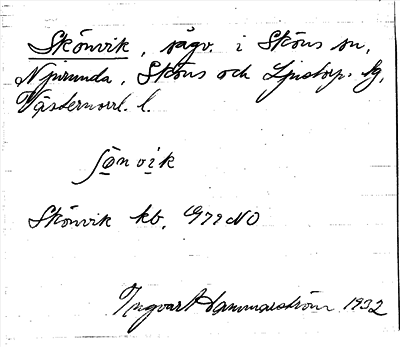 Skönvik, sågv. i Sköns sn,
Njurunda, Sköns och Ljustorp. tg,
Västernorrl. l.
ʃö̱nvi̱k
Skönvik kb, G79 NO
Ingvar Hammarström 1932